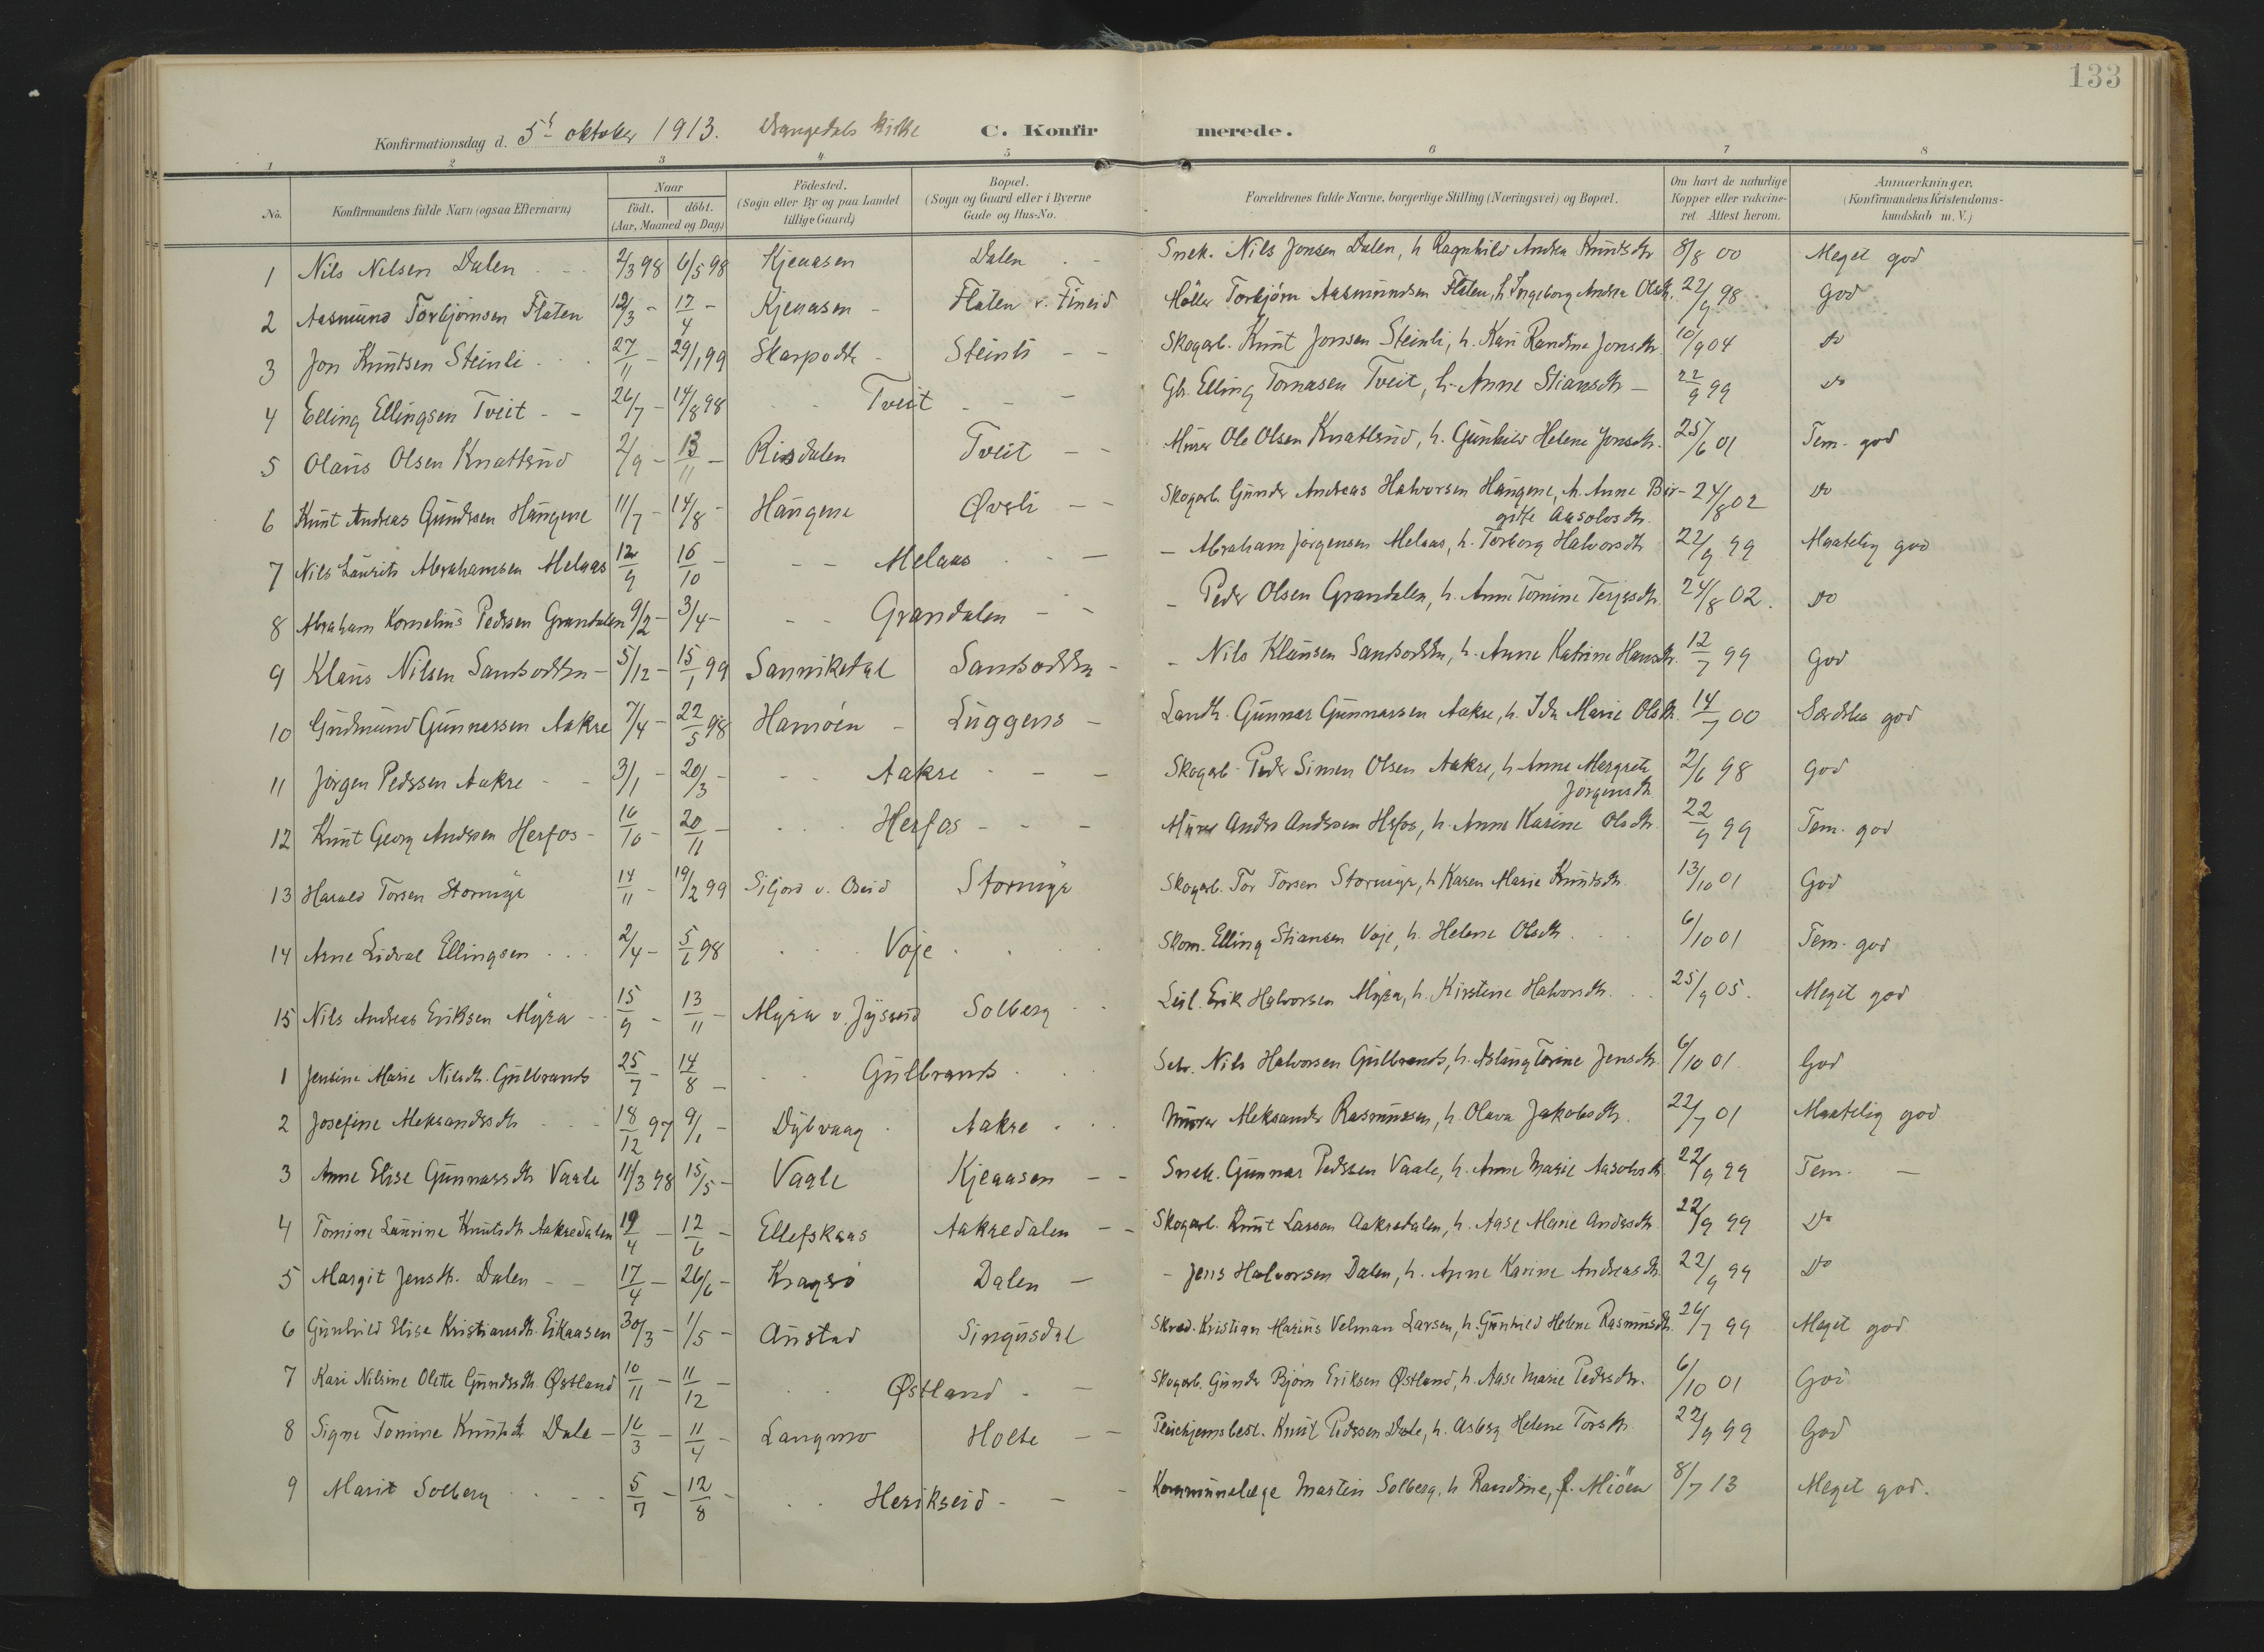 133
Konfirmationsdag d. 5te oktober 1913. Drangedals kirke C. Konfirmerede.
1 2 3 4 5 6 7 8
No. Konfirmandens fulde Navn (ogsaa Efternavn) Naar født, døbt. (Aar, Maaned og Dag) Födested. (Sogn eller By og paa Landet tillige Gaard) Bopæl. (Sogn og Gaard eller i Byerne Gade og Hus-No. Forældrenes fulde Navne, borgerlige Stilling (Næringsvei) og Bopæl. Om havt de naturlige Kopper eller vakcineret. Attest herom. Anmærkninger. (Konfirmandens Kristendomskundskab m. V.)
1 Nils Nilsen Dalen 2/3 98 6/5 98 Kjeaasen Dalen Snek. Nils Jonsen Dalen, h. Ragnhild Andrea Knutsdtr 8/8 00 Meget god
2 Aasmund Torbjørnsen Flaten 12/3 - 17/4 - Kjeaasen - Flaten v. Fineid Møller Torbjørn Aasmundsen Flaten, h. Ingeborg Andrea Olsdtr. 22/9 98 God
3 Jon Knutsen Steinli 27/11 - 29/1 99 Skarpodte - Steinli - - Skogarb. Knut Jonsen Steinli, h. Kari Randine Jonsdtr 10/9 04 do
4 Elling Ellingsen Tveit - - 26/7 - 14/8 98 Tveit - - - Gb. Elling Tomasen Tveit, h. Anne Stiansdtr - 22/9 99 do
5 Olaus Olsen Knatterud 2/9 - 13/11 - Risdalen Tveit - - Murer Ole Olsen Knatterud, h. Gunhild Helene Jonsdtr. 25/6 01 Tem. god
6 Knut Andreas Gundersen Haugene 11/7 - 14/8 - Haugene Øvsli - - Skogarb. Gunder Andreas Halvorsen Haugene, h. Anne Birgitte Aasolvsdtr. 24/8 02 do
7 Nils Laurits Abrahamsen Melaas 12/9 16/10 - - - Melaas - - Abraham Jørgensen Melaas, h. Torborg Halvorsdtr 22/9 99 Maatelig god
8 Abraham Kornelius Pedersen Grandalen 9/2 - 3/4 - - - Grandalen - - - Peder Olsen Grandalen, h. Anne Tomine Terjesdtr. 24/8 02. do
9 Klaus Nilsen Sandsodden - 5/12 - 15/1 99 Sannikedal Sandsodden - - Nils Klausen Sandsodden, h. Anne Katrine Hansdtr. 12/7 99 God
10 Gudmund Gunnarsen Aakre 7/4 - 22/5 98 Hamøen - Luggens - Landh. Gunnar Gunnarsen Aakre, h. Ida Marie Olsdtr. 14/7 00 Særdeles god
11 Jørgen Pedersen Aakre - - 3/1 - 20/3 - - - Aakre - - - Skogarb. Peder Simen Olsen Aakre, h. Anne Margrete Jørgensdtr 2/6 98 God
12 Knut Georg Andersen Herfos - 16/10 - 20/11 - Herfos - - - Murer Anders Andersen Herfos, h. Anne Karine Olsdtr. 22/9 99 Tem. god
13 Harald Torsen Stormyr 14/11 - 19/2 99 Siljord v. Øseid Stormyr Skogarb. Tor Torsen Stormyr, h. Karen Marie Knutsdtr. 13/10 01 God
14 Arne Lidval Ellingsen 2/4 - 5/6 98 Voje Skom. Elling Stiansen Voje, h. Helene Olsdtr. 6/10 01 Tem. god
15 Nils Andreas Eriksen Myra - - 15/9 - 13/11 - Myra v. Jysereid Solberg Leil. Erik Halvorsen Myra, h. Kirstine Halvorsdtr. 25/9 05. Meget god
1 Jensine Marie Nilsdtr. Gulbrands 25/7 - 14/8 - Gulbrands Selv. Nils Halvorsen Gulbrands, h. Aslaug Torine Jensdtr. 6/10 01. God
2 Josefine Aleksandersdtr 18/12 97 9/1 - Dybvaag Aakre Murer Aleksander Rasmussen, h. Olava Jakobsdtr. 22/7 01 Maatelig god
3 Anne Elise Gunnarsdtr Vaale 11/3 98 15/5 - Vaale Kjeaasen - - Snek. Gunnar Pedersen Vaale, h. Anne Marie Aasolvsdtr. 22/9 99 Tem. -
4 Tomine Laurine Knutsdtr Aakredalen 19/4 - 12/6 - Ellefskaas Aakredalen - - Skogarb. Knut Larsen Aakredalen, h. Aase Marie Andersdtr. 22/9 99 Do
5 Margit Jensdtr. Dalen - - 17/4 - 26/6 - Kragerø Dalen - - Jens Halvorsen Dalen, h. Anne Karine Andreasdtr. 22/9 99 Do
6 Gunhild Elise Kristiansdtr. Eikaasen 30/3 - 1/5 - Austad Singusdal Skred. Kristian Marius Velman Larsen, h. Gunhild Helene Rasmusdtr. 26/7 99 Meget god
7 Kari Nilsine Olette Gundersdtr. Østland 10/11 - 11/12 - Østland - - Skogarb. Gunder Bjørn Eriksen Østland, h. Aase Marie Pedersdtr. 6/10 01 God
8 Signe Tomine Knutsdtr Dale - 16/3 - 11/4 - Langmo Holte - - Pleiehjemsbest. Knut Pedersen Dale, h. Asberg Helene Torsdtr. 22/9 99 God
9 Marit Solberg 5/7 - 12/8 - Henikseid - - - Kommunelæge Martin Solberg, h. Randine, f. Miöen 8/7 13 Meget god.